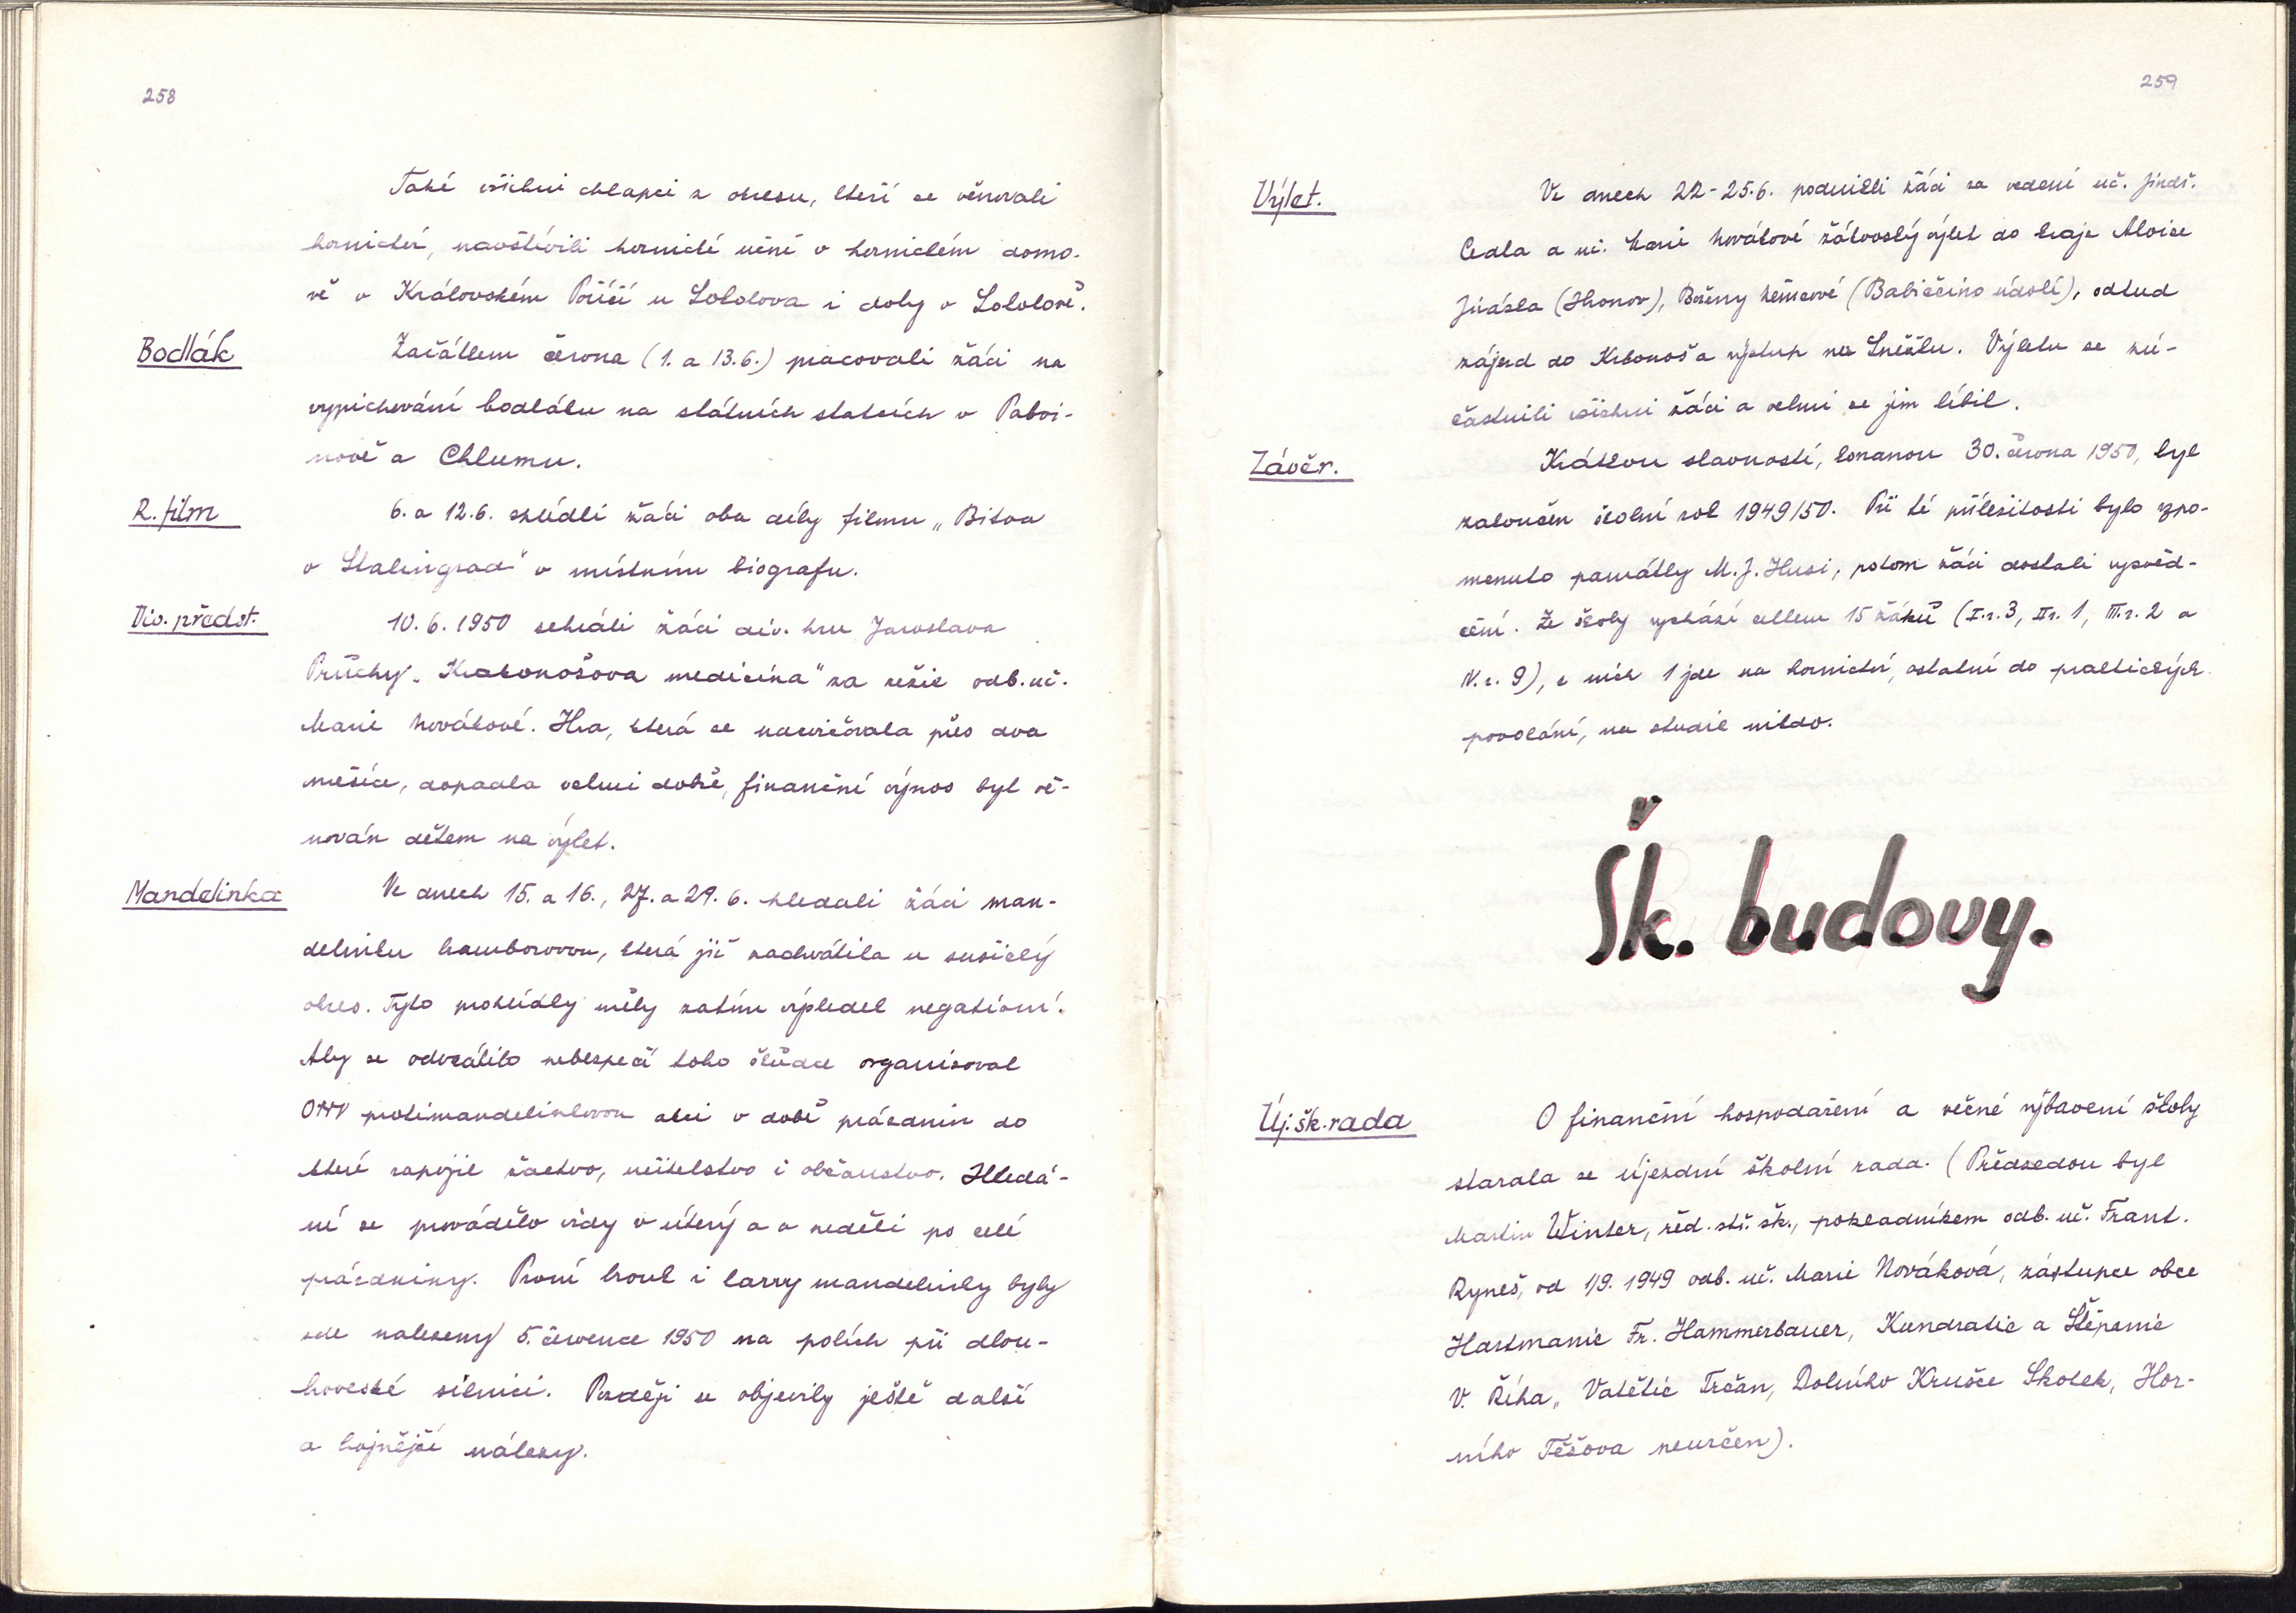 258
Také všichni chlapci z okresu, kteří se věnovali
hornictví, navštívili hornické učně v hornickém domo-
vě v Královském Poříčí u Sokolova i doly v Sokolově.
Bodlák
Začátkem června (1. a 13.6.) pracovali žáci na
vypichování bodláku na státních statcích v Pabvi-
nově a Chlumu.
R. film
6. a 12.6. shlédli žáci oba díly filmu „Bitva
o Stalingrad" v místním biografu.
Div. předst.
10.6.1950 sehráli žáci div. hru Jaroslava
Průchy „Krakonošova medicína" za režie odb. uč.
Marie Novákové. Hra, která se nacvičovala přes dva
měsíce, dopadla velmi dobře, finanční výnos byl vě-
nován dětem na výlet.
Mandelinka
Ve dnech 15. a 16., 27. a 29. 6. hledali žáci man-
delinku bramborovou, která již zachvátila u sušický
okres. Tyto prohlídky měly zatím výsledek negativní.
Aby se odvrátilo nebezpečí toho škůdce organisoval
ONV protimandelinkovou akci v době prázdnin do
které zapojil žactvo, učitelstvo i občanstvo. Hledá-
ní se provádělo vždy v úterý a v neděli po celé
prázdniny. První brouk i larvy mandelinky byly
zde nalezeny 5. července 1950 na polích při dlou-
hoveské silnici. Později se objevily ještě další
a hojnější nálezy.
259
Výlet.
Ve dnech 22-25.6. podnikli žáci za vedení uč. Jindř.
Cedla a uč. Marie Novákové žákovský výlet do kraje Aloise
Jiráska (Hronov), Boženy Němcové (Babiččino údolí), odtud
zájezd do Krkonoš a výstup na Sněžku. Výletu se zú-
častnili všichni žáci a velmi se jim líbil.
Závěr.
Krátkou slavností, konanou 30. června 1950, byl
zakončen školní rok 1949/50. Při té příležitosti bylo vzpo-
menuto památky M. J. Husi, potom žáci dostali vysvěd-
čení. Ze školy vychází celkem 15 žáků (I.r. 3, II.r. 1, III.r. 2 a
IV. r. 9), z nich 1 jde na hornictví, ostatní do praktických
povolání, na studie nikdo.
Šk. budovy.
Új. šk. rada
O finanční hospodaření a věcné vybavení školy
starala se újezdní školní rada. (Předsedou byl
Martin Winter, řed. stř. šk., pokladníkem odb. uč. Frant.
Ryneš, od 1/9. 1949 odb. uč. Marie Nováková, zástupce obce
Hartmanic Fr. Hammerbauer, Kundratic a Štěpanic
V. Říha, Vatětic Trčan, Dolního Krušce Skolek, Hor-
ního Těšova neurčen).